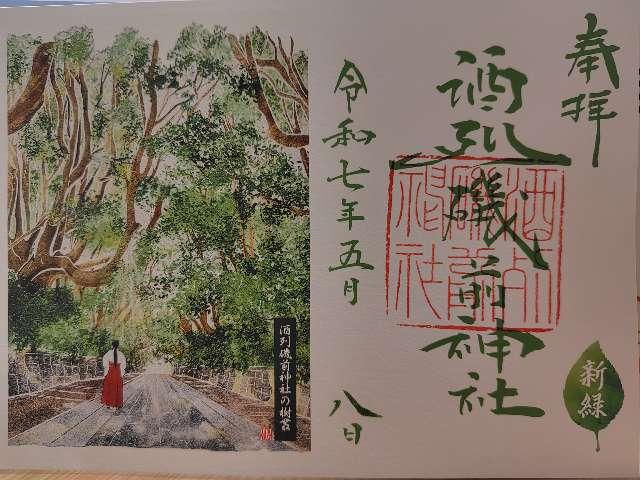 奉拝
酒列磯前神社
酒列磯前神社
新緑
令和七年五月
八日
酒列磯前神社の樹叢